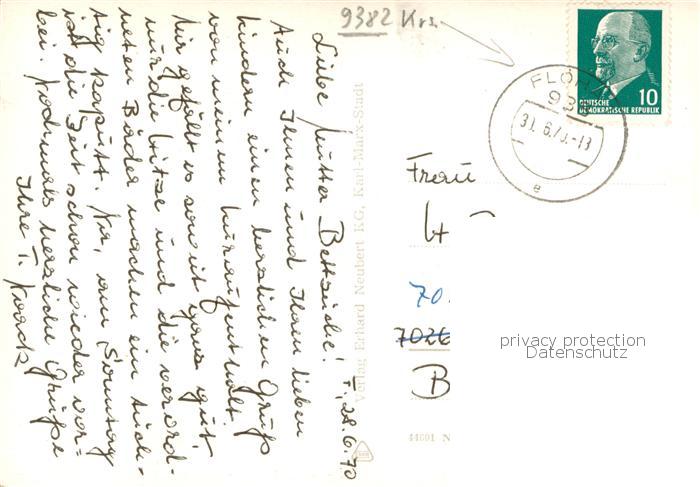 9382 Krs.
FLÖHA
93
31.6.70.-18
e
10
DEUTSCHE
DEMOKRATISCHE REPUBLIK
F., 28.6.70
Liebe Mutter Bettzüche!
Auch Ihnen und Ihren lieben
Kindern einen herzlichen Gruß
von meinem Kuraufenthalt.
Mir gefällt es soweit ganz gut,
nur die Hitze und die verord-
neten Bäder machen ein tüch-
tig kaputt. Na, am Sonntag
ist die Zeit schon wieder vor-
bei. Nochmals herzliche Grüße
Ihre T. Noack
Verlag Erhard Neubert KG, Karl-Marx-Stadt
Frau
70.
7026
B
44601 N
privacy protection
Datenschutz